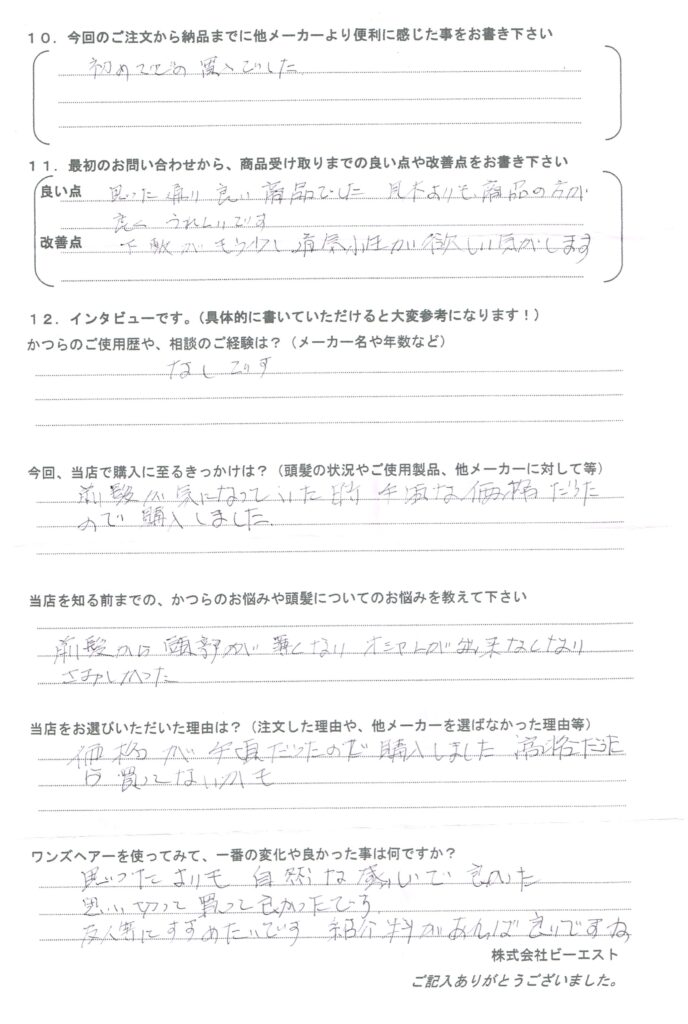 10．今回のご注文から納品までに他メーカーより便利に感じた事をお書き下さい
初めてでの買入でした
11．最初のお問い合わせから、商品受け取りまでの良い点や改善点をお書き下さい
良い点 思った通り良い商品でした 見本よりも商品の方が
良く うれしいです
改善点 下敷がもう少し 通気性が欲しい気がします
12．インタビューです。（具体的に書いていただけると大変参考になります！）
かつらのご使用歴や、相談のご経験は？（メーカー名や年数など）
なしです
今回、当店で購入に至るきっかけは？（頭髪の状況やご使用製品、他メーカーに対して等）
前髪が気になっていた時 手頃な価格だった
ので購入しました
当店を知る前までの、かつらのお悩みや頭髪についてのお悩みを教えて下さい
前髪から頭部かが薄くなり オシャレが出来なくなり
さみしかった
当店をお選びいただいた理由は？（注文した理由や、他メーカーを選ばなかった理由等）
価格が手頃だったので購入しました 高格だった
ら買ってないかも
ワンズヘアーを使ってみて、一番の変化や良かった事は何ですか？
思ったよりも自然な感いで良かった
思い切って買って良かったです
友人等にすすめたいです 紹介料があれば良いですね
株式会社ビーエスト
ご記入ありがとうございました。